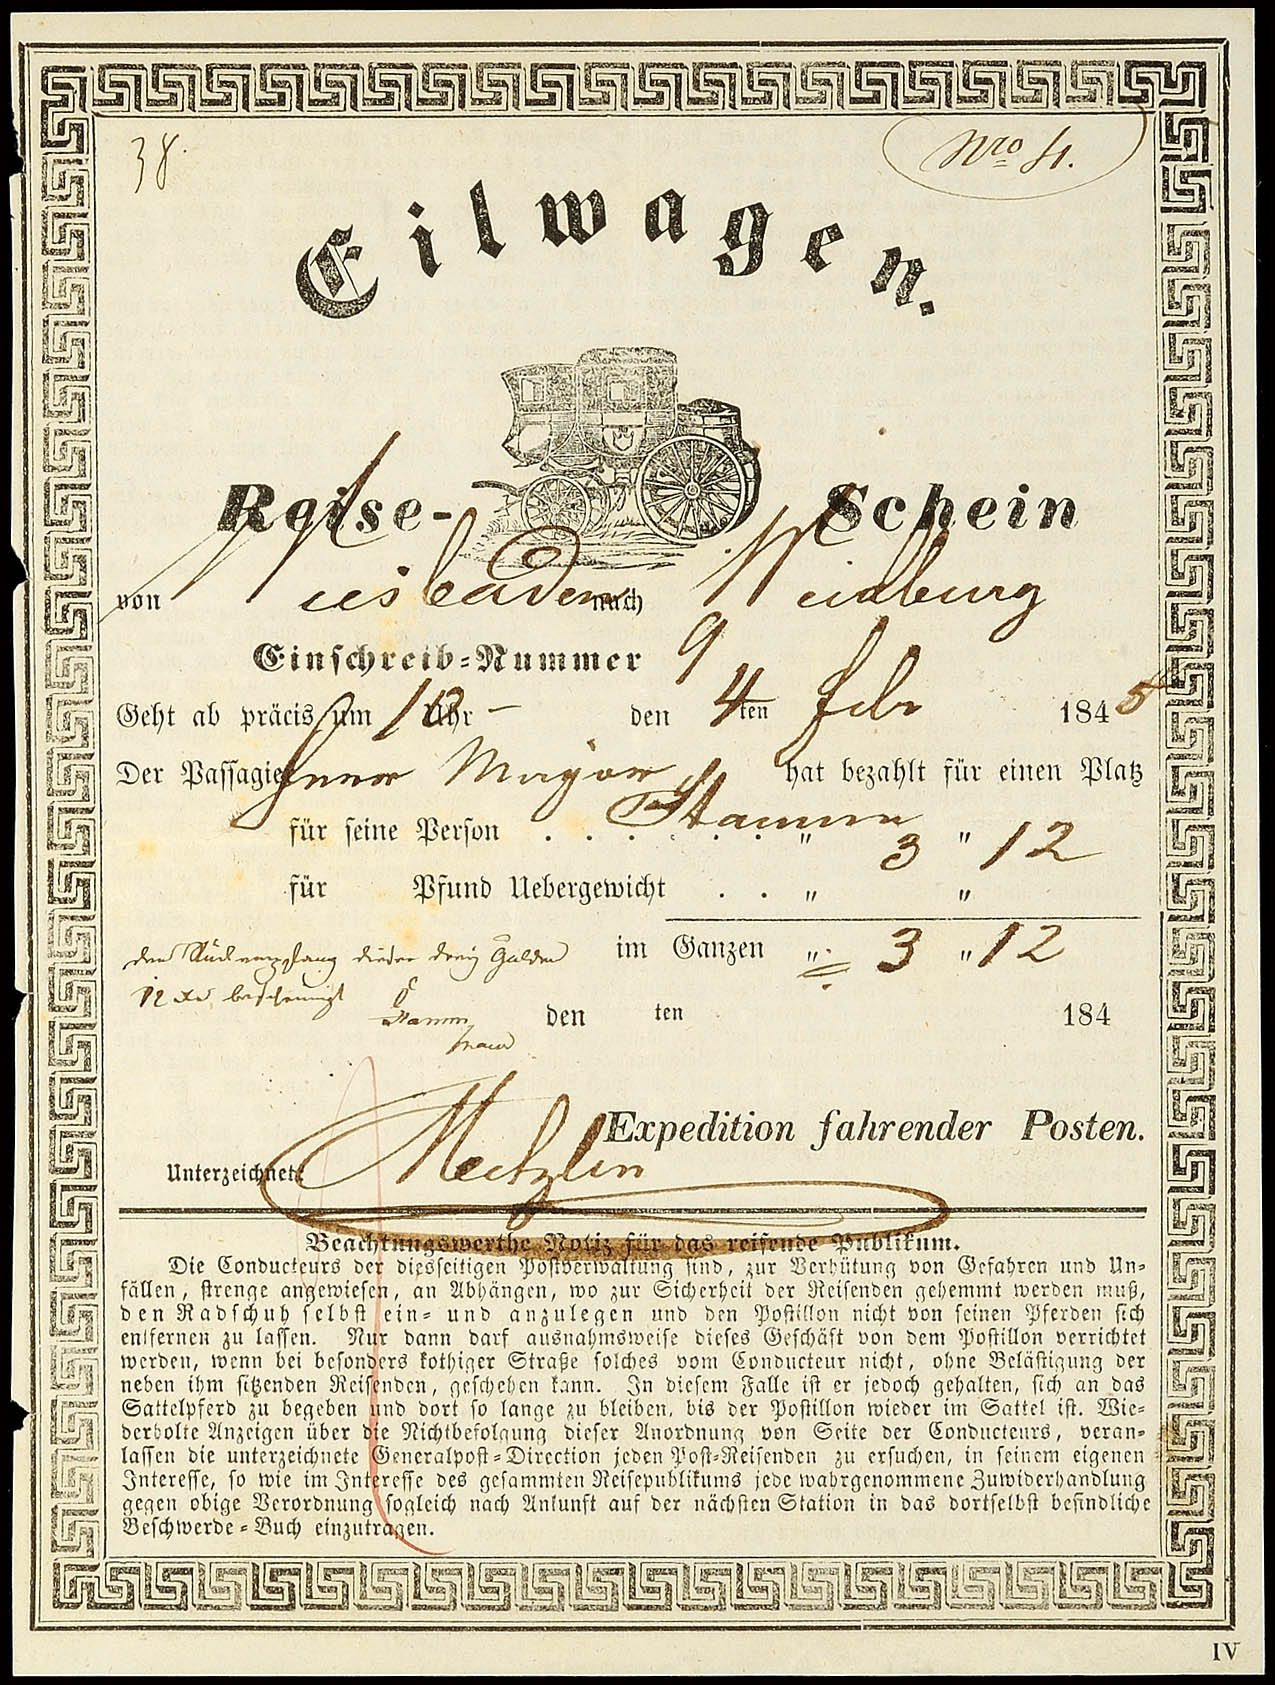 38.
Nro 4.
Eilwagen.
Reise-Schein
von Wiesbaden nach Weilburg
Einschreib-Nummer 9
Geht ab präcis um 10 Uhr – den 4ten Febr 1845
Der Passagier Herr Major hat bezahlt für einen Platz
Stamm
für seine Person . . . . . . „ 3 „ 12
für Pfund Uebergewicht . . „ „
im Ganzen „ 3 „ 12
den Rückempfang dieser drey Gulden
12 bescheinigt
Stamm
den ten 184
Expedition fahrender Posten.
Unterzeichnet:
Beachtungswerthe Notiz für das reisende Publikum.
Die Conducteurs der diesseitigen Postverwaltung sind, zur Verhütung von Gefahren und Un-
fällen, strenge angewiesen, an Abhängen, wo zur Sicherheit der Reisenden gehemmt werden muß,
den Radschuh selbst ein- und anzulegen und den Postillon nicht von seinen Pferden sich
entfernen zu lassen. Nur dann darf ausnahmsweise dieses Geschäft von dem Postillon verrichtet
werden, wenn bei besonders kothiger Straße solches vom Conducteur nicht, ohne Belästigung der
neben ihm sitzenden Reisenden, geschehen kann. In diesem Falle ist er jedoch gehalten, sich an das
Sattelpferd zu begeben und dort so lange zu bleiben, bis der Postillon wieder im Sattel ist. Wie-
derholte Anzeigen über die Nichtbefolgung dieser Anordnung von Seite der Conducteurs, veran-
lassen die unterzeichnete Generalpost-Direction jeden Post-Reisenden zu ersuchen, in seinem eigenen
Interesse, so wie im Interesse des gesammten Reisepublikums jede wahrgenommene Zuwiderhandlung
gegen obige Verordnung sogleich nach Ankunft auf der nächsten Station in das dortselbst befindliche
Beschwerde-Buch einzutragen.
IV